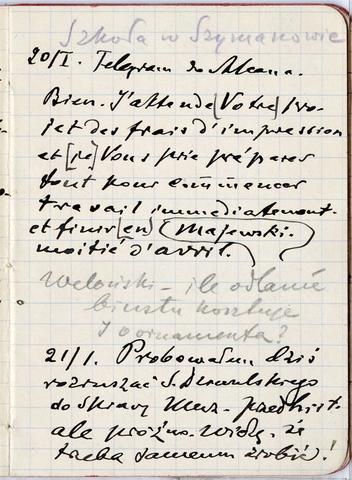 Szkoła w Szymanowie
20/I. Telegram do Alcana.
Bien. J'attends [Votre] pro-
jet des frais d'impression
et [je] Vous prie préparer
tout pour commencer
travail immédiatement
et finir [en] Majewski.
moitié d'avril.
Weloński - ile odlanie
biustu kosztuje
i ornamenta?
21/I. Probowałem dziś
rozruszać S. Dziewulskiego
do sprawy Muz. przedhist.
ale próżno. Widzę, że
trzeba samemu zrobić!